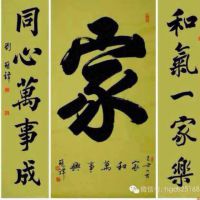 和氣一家樂
家
家和萬事興
同心萬事成
微信号: